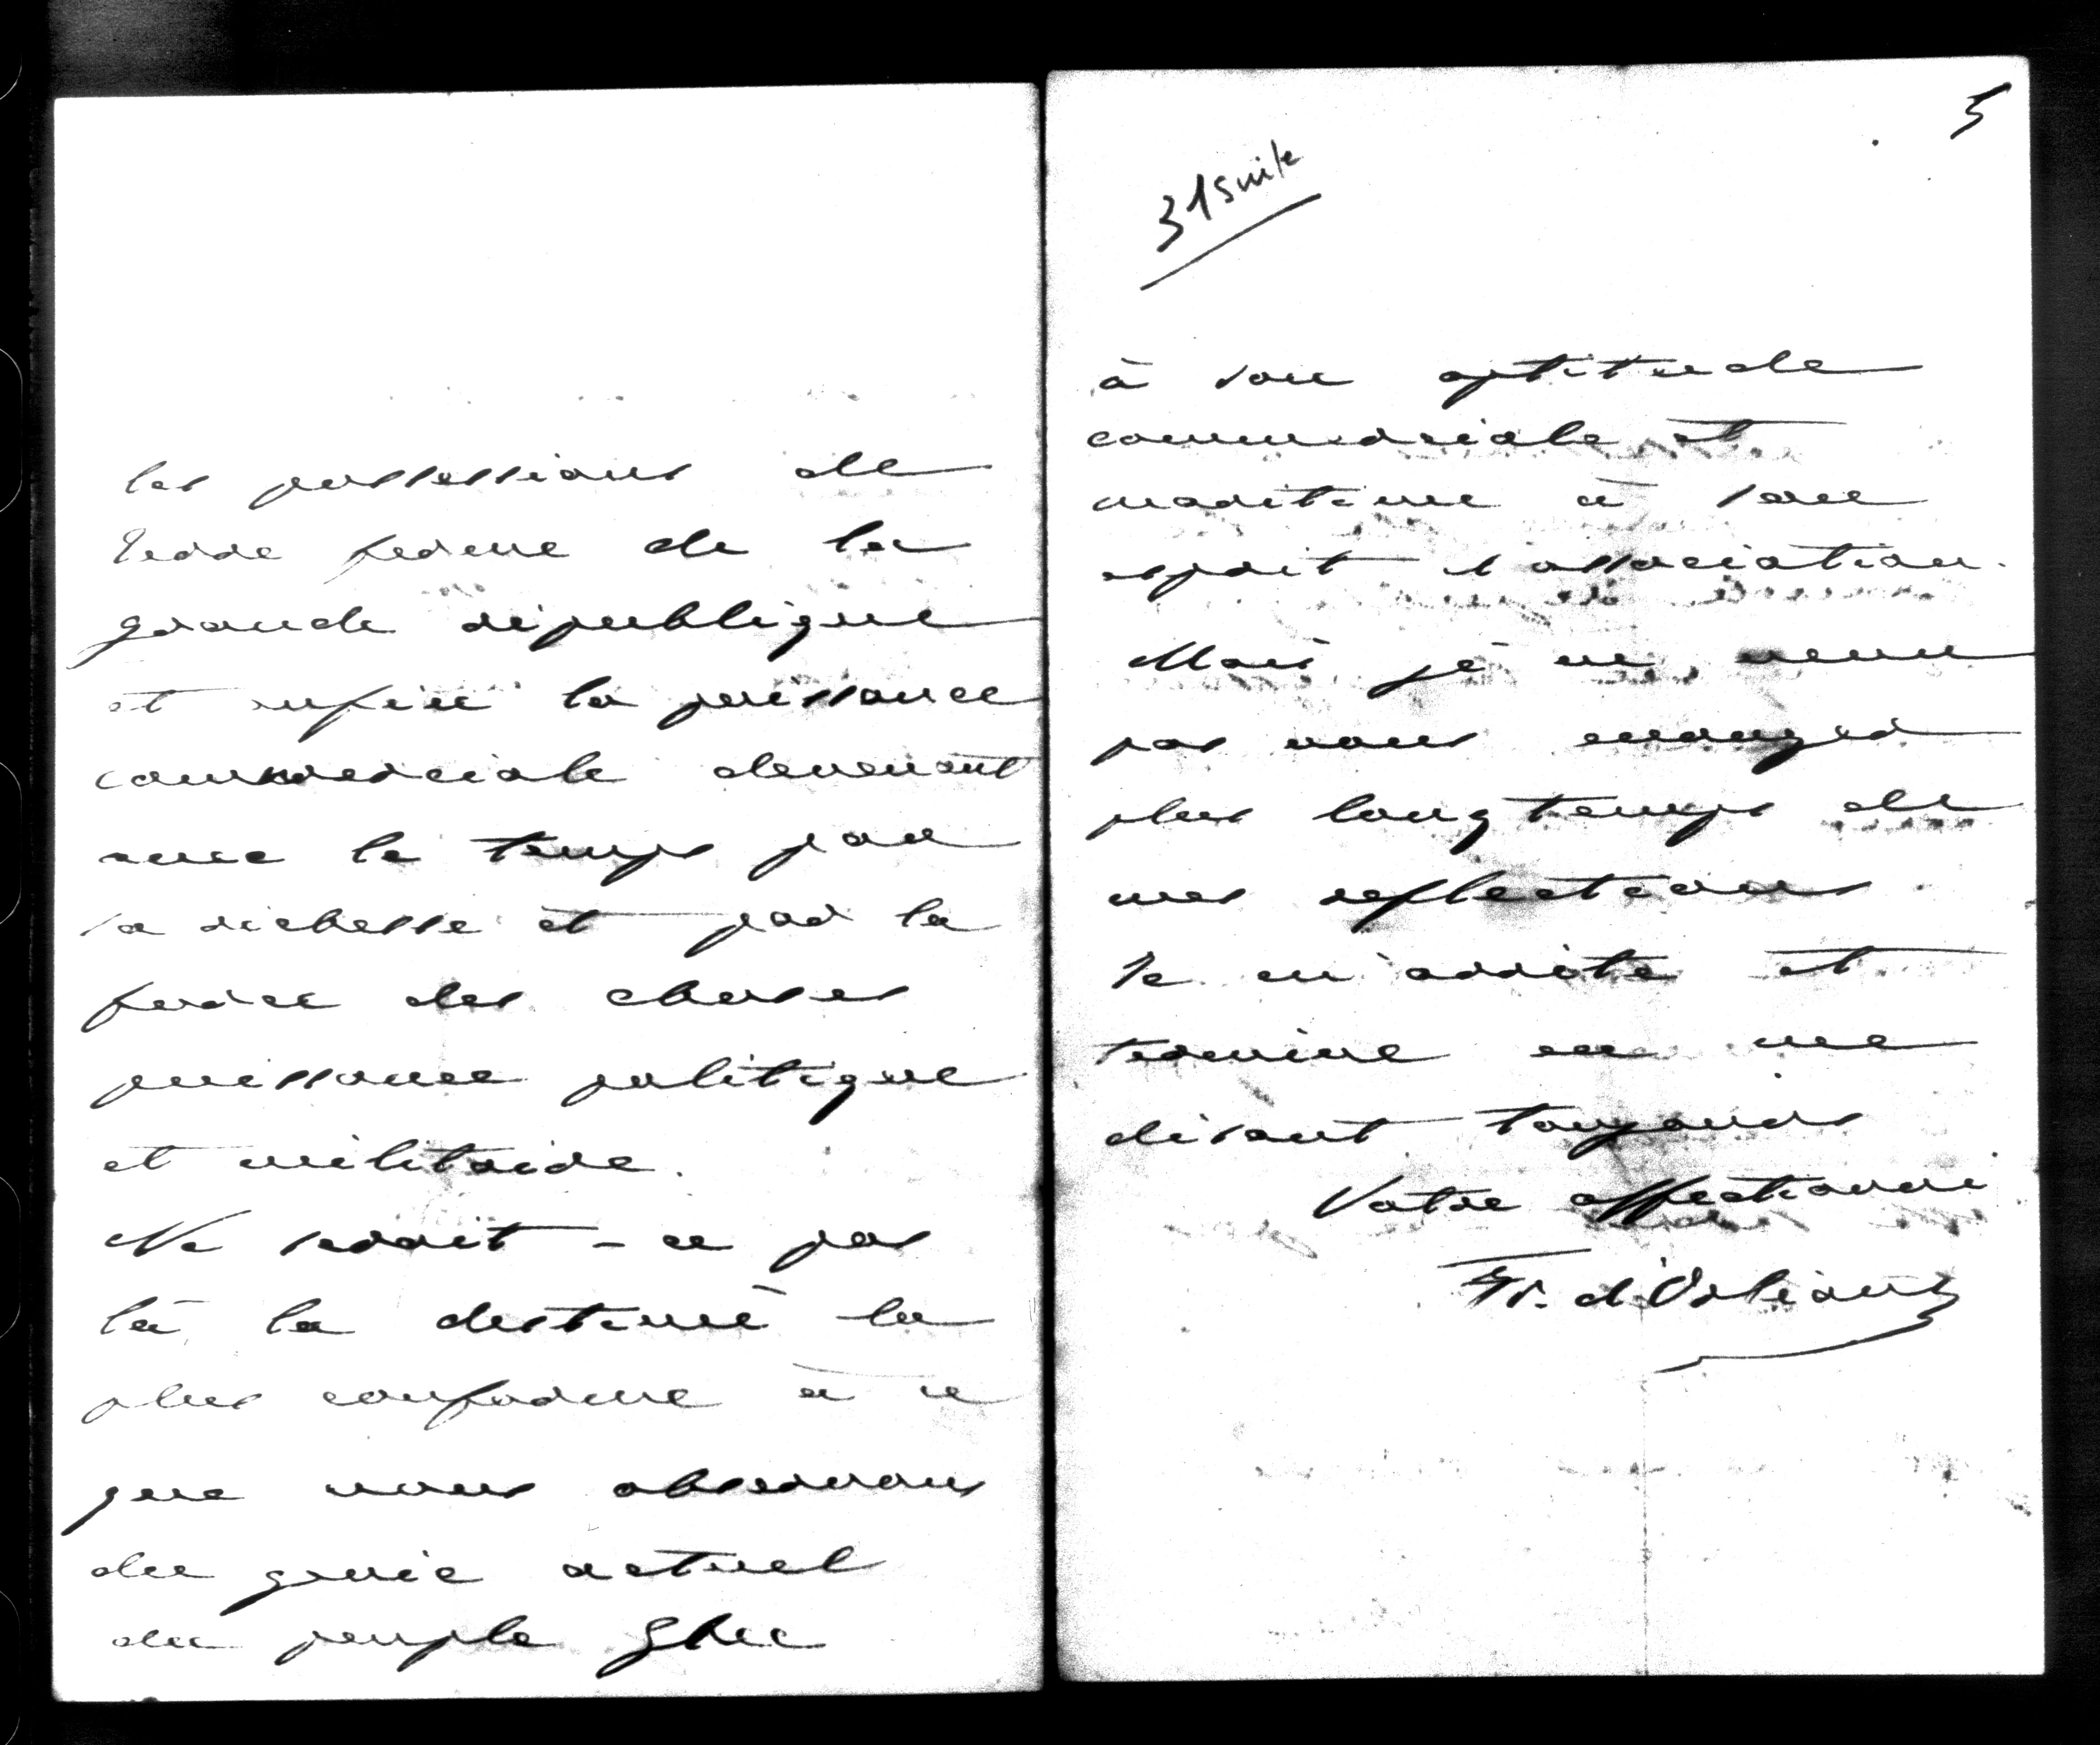 les possessions de
terre ferme de la
grande république
et enfin la puissance
commerciale devenant
avec le temps par
sa richesse et par la
force des choses
puissance politique
et militaire.
Ne serait-ce pas
là la destinée la
plus conforme à ce
que nous observons
du génie actuel
du peuple Grec
5
31 suite
à son aptitude
commerciale et
maritime à son
esprit d'association.
Mais je ne veux
pas vous
plus longtemps de
mes reflections
Je m'arrête et
termine en me
disant toujours
Votre affectionné
Fr. d'Orléans